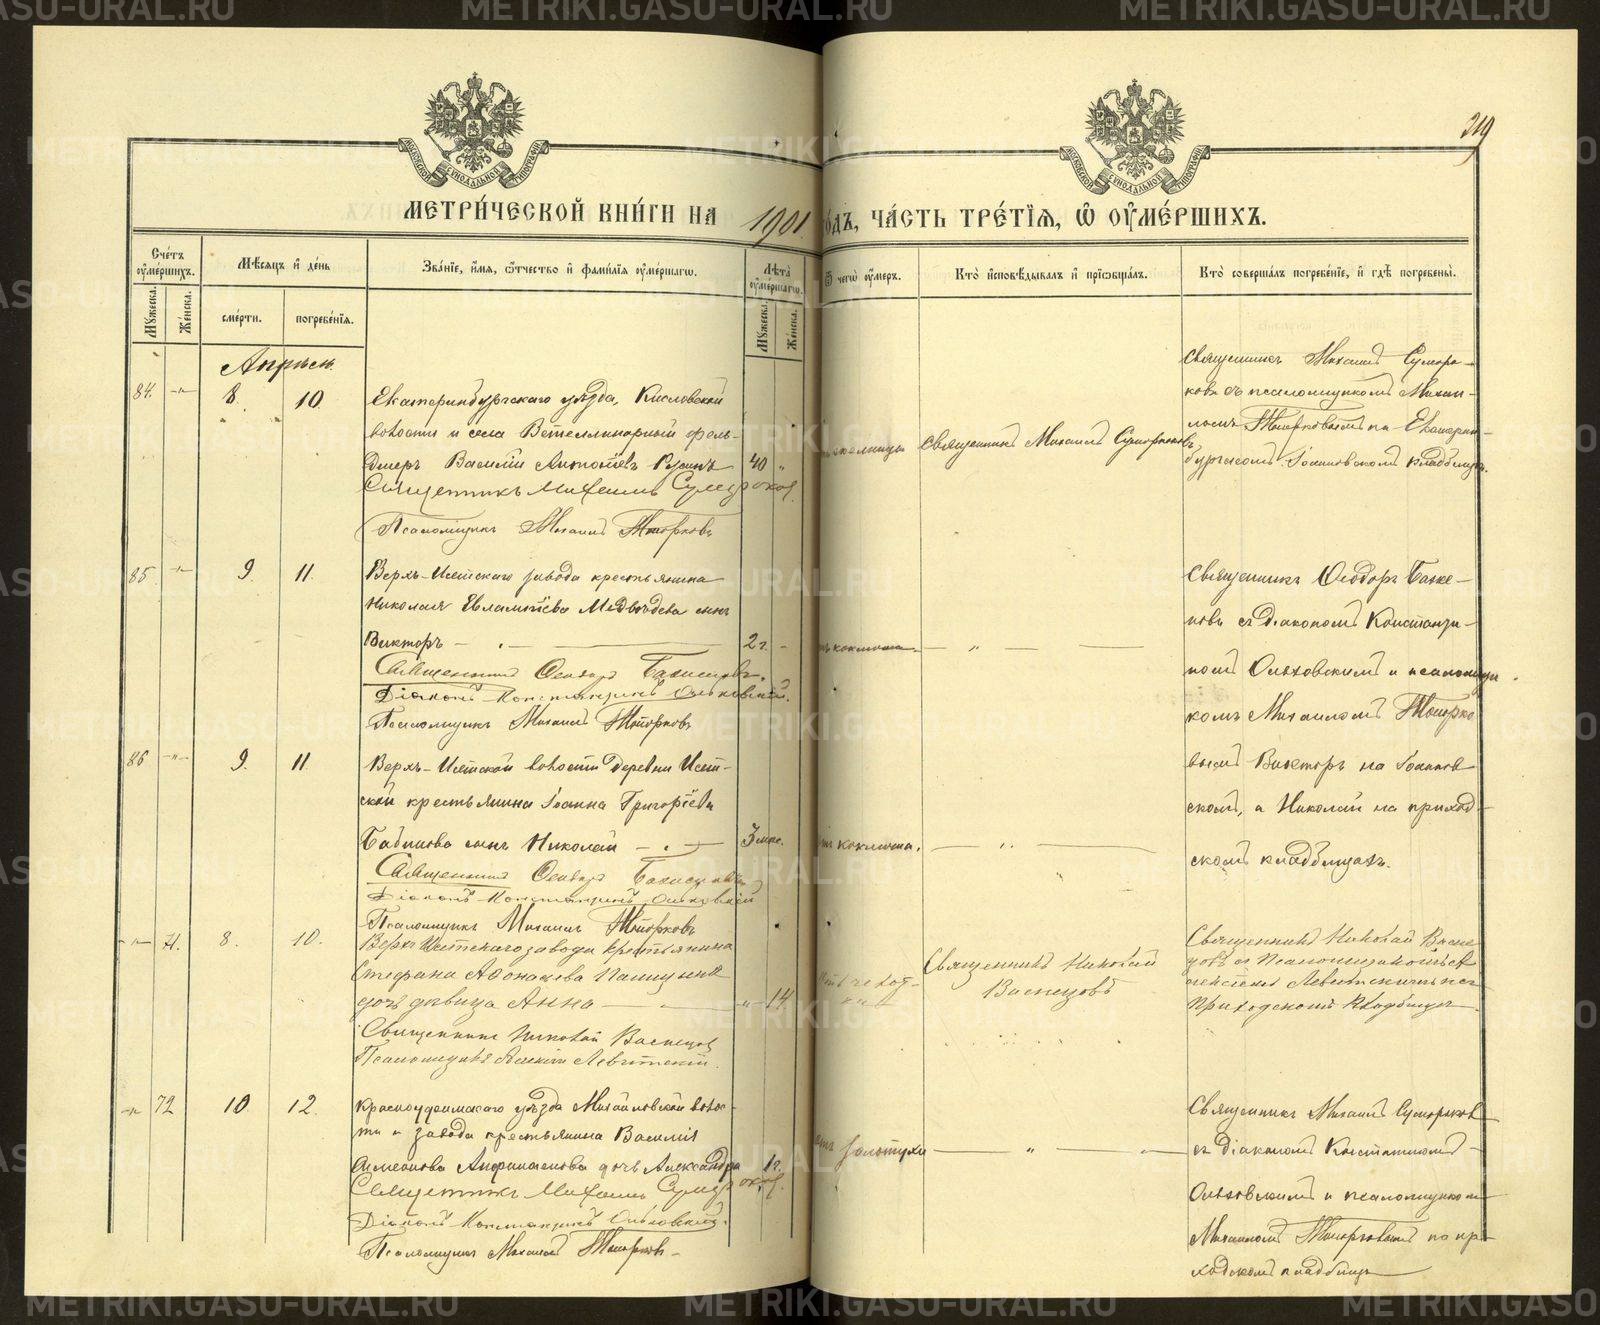 219
МОСКОВСКОЙ СѴНОДАЛЬНОЙ ТИПОГРАФІИ
МОСКОВСКОЙ СѴНОДАЛЬНОЙ ТИПОГРАФІИ
МЕТРИ́ЧЕСКОЙ КНИ́ГИ НА 1901 го́дъ, ЧА́СТЬ ТРЕ́ТІѦ, Ѡ ОУ҆МЕ́РШИХЪ.
Сче́тъ оу҆ме́ршихъ.
Мꙋжеска.
Же́нска.
Мѣ́сѧцъ и҆ де́нь
сме́рти.
погребе́нїѧ.
Зва́нїе, и҆́мѧ, ѻ҆́тчество и҆ фами́лїѧ оу҆ме́ршагѡ.
Лѣ́та оу҆ме́ршагѡ.
Мꙋжеска.
Же́нска.
Ѿ чегѡ̀ оу҆́меръ.
Кто̀ и҆сповѣ́дывалъ и҆ прїѡбща́лъ.
Кто̀ соверша́лъ погребе́нїе, и҆ гдѣ̀ погребены̀.
Апрѣль
84. -"- 8. 10.
Екатеринбургскаго уѣзда, Кисловской
волости и села Ветеллинарный фель-
дшеръ Василій Антоніевъ 40 "
Священникъ Михаилъ Сумароков
Псаломщикъ Михаилъ Топорковъ
Священникъ Михаилъ Сумароковъ
Священникъ Михаилъ Сумаро-
ковъ съ псаломщикомъ Михаи-
ломъ Топорковымъ на Екатерин-
бургскомъ Іоанновскомъ кладбищѣ.
85. -"- 9. 11.
Верхъ-Исетскаго завода крестьянина
Николая Евлампіева Медвѣдева сынъ
Викторъ — 2 г. -
Священникъ Ѳеодоръ
Діаконъ Константинъ Ольховскій.
Псаломщикъ Михаилъ Топорковъ
коклюша. — " —
Священникъ Ѳеодоръ
новъ съ діакономъ Константи-
номъ Ольховскимъ и псаломщи-
комъ Михаиломъ Топорко
вымъ Викторъ на Іоаннов
скомъ, а Николай на приход-
скомъ кладбищахъ.
86 -"- 9. 11
Верхъ-Исетской волости деревни Исет-
ской крестьянина Іоанна Григоріева
Бабинова сынъ Николай — 3 мѣс.
Священникъ Ѳеодоръ
Діаконъ Константинъ Ольховскій
Псаломщикъ Михаилъ Топорковъ
коклюша. — " —
-"- 71. 8. 10.
Верхъ Исетскаго завода крестьянина
Стефана Аѳонасьева
дочь дѣвица Анна — " 14
Священникъ Николай Васнецов
Псаломщикъ Алексій Левитскій.
отъ чахот-
ки
Священникъ Николай
Васнецовъ
Священникъ Николай Васне
цовъ съ Псаломщикомъ А
лексіемъ Левитскимъ на
Приходскомъ Кладбищѣ
-"- 72 10 12.
Красноуфимскаго уѣзда Михайловской волос-
ти и завода крестьянина Василія
Симеонова дочь Александра 1 г.
Священникъ Михаилъ Сумароков.
Діаконъ Константинъ Ольховскій.
Псаломщикъ Михаилъ Топорковъ-
отъ золотухи — " —
Священникъ Михаилъ Сумароков
съ діакономъ Константиномъ
Ольховскимъ и псаломщикомъ
Михаиломъ Топорковымъ на при-
ходскомъ кладбищѣ
METRIKI.GASU-URAL.RU